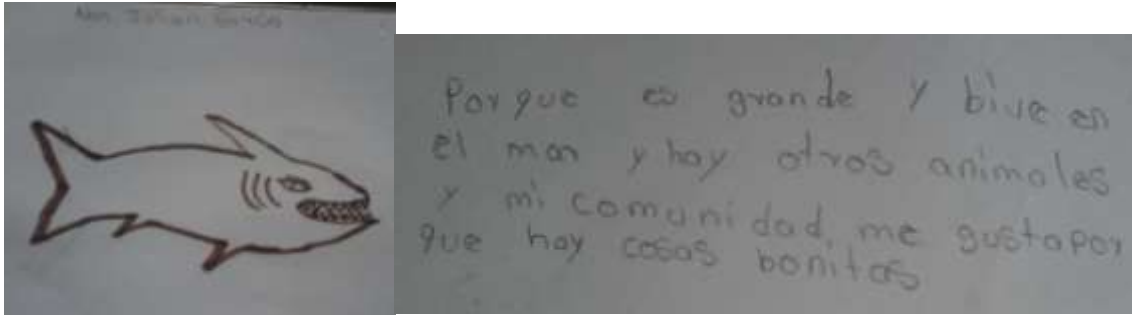 Porque es grande y bive en
el mar y hay otros animales
y mi comunidad, me gusta por
que hay cosas bonitas